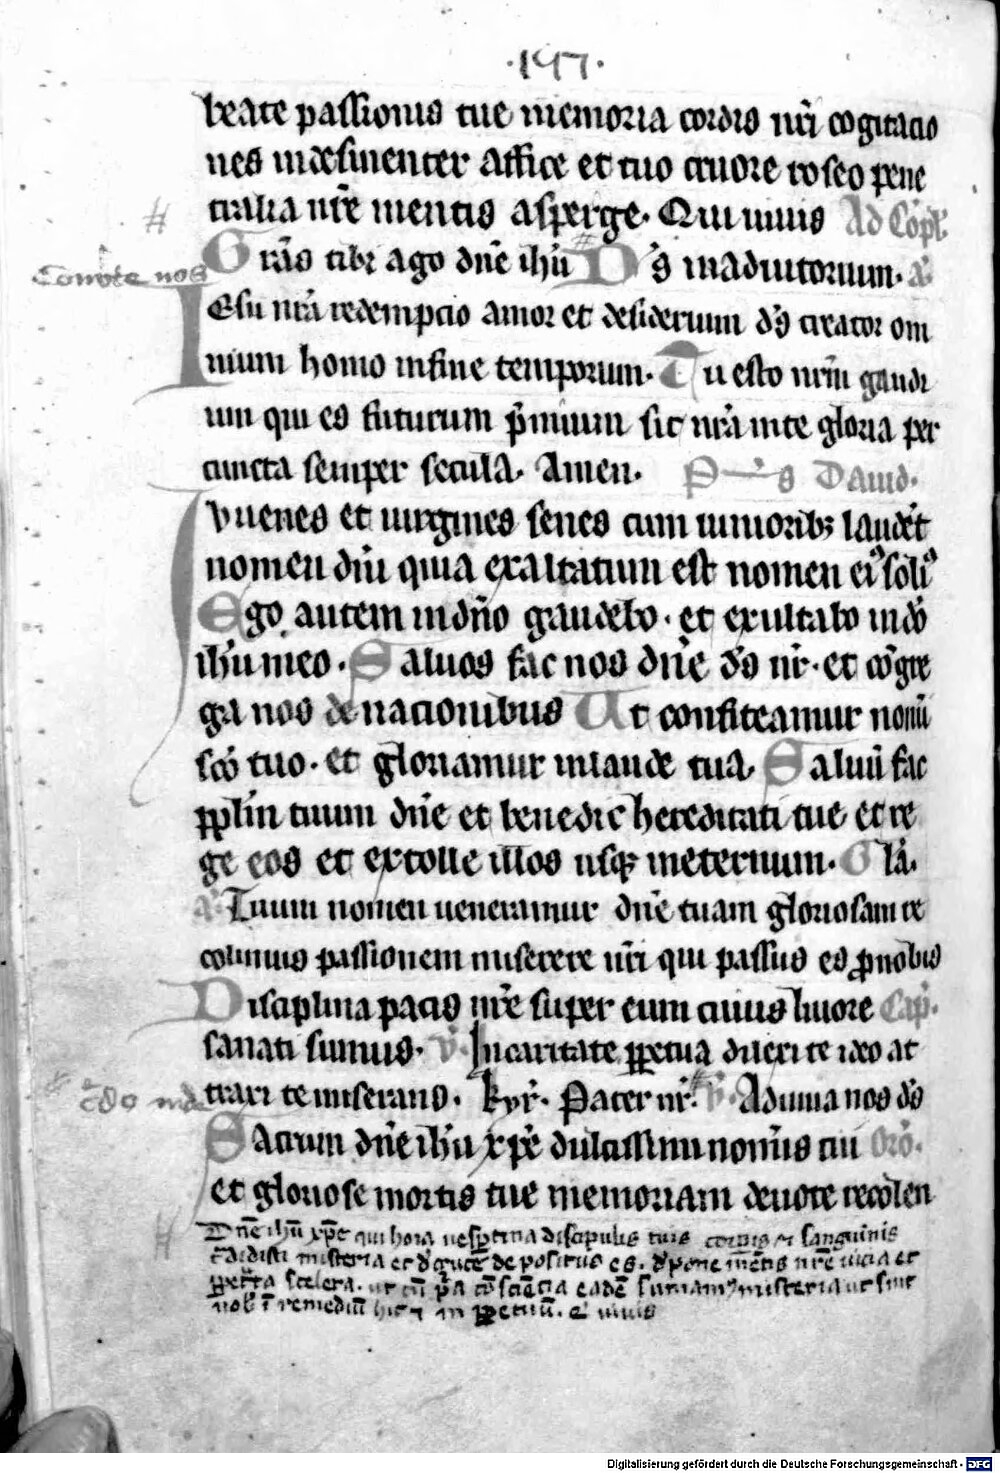 .197.
beate passionis tue memoria cordis nr̄i cogitacio
nes indesinenter affice et tuo cruore roseo pene
tralia nr̄e mentis asperge. Qui uiuis Ad Cōpl'.
# Grās tibi ago dn̄e ihū # D's inadiutorium. a.
Conv̄te nos
Iesu nr̄a redempcio amor et desiderium d's creator om
nium homo infine temporum. Tu esto nr̄m gaudi
um qui es futurum p̄mium sit nr̄a inte gloria per
cuncta semper secula. Amen. P—s Dauid.
Iuuenes et uirgines senes cum iunioribꝫ laudēt
nomen dn̄i quia exaltatum est nomen ei' soli'
Ego autem indn̄o gaudebo. et exultabo indō
ihū meo. Saluos fac nos dn̄e d's nr̄. et cōgre
ga nos denacionibus Ut confiteamur nomī
scō tuo. et gloriamur inlaude tua. Saluū fac
pplm̄ tuum dn̄e et benedic hereditati tue et re
ge eos et extolle illos usqꝫ ineternum. Glā.
a. Tuum nomen ueneramur dn̄e tuam gloriosam re
colimus passionem miserere nr̄i qui passus es ꝓnobis
Disciplina pacis nr̄e super eum cuius liuore Cap̄.
sanati sumus. v̄. Incaritate ꝑpetua dilexi te ideo at
traxi te miserans. kyr̄. Pater nr̄. # v̄. Adiuua nos d's
Sacrum dn̄e ihū xp̄e dulcissimi nomīs tui Orō.
et gloriose mortis tue memoriam deuote recolen
# Dn̄e ihū xp̄e qui hora uesꝑtina discipulis tuis corpis et sanguinis
t̄didisti misteria et d' cruce depositus es. d'pone mētis nr̄e uicia et
ꝑpetrata scelera. ut cū p̄a cōsciēcia eadē sumam' misteria ut sint
nob' ī remediū hic et in ꝑpetuū. Q' uiuis
Digitalisierung gefördert durch die Deutsche Forschungsgemeinschaft - DFG